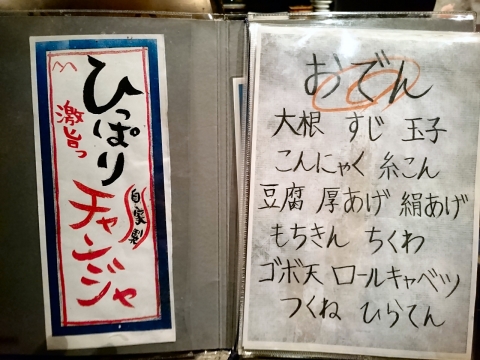 ひっぱり
激旨っ
自家製
チャンジャ
おでん
大根 すじ 玉子
こんにゃく 糸こん
豆腐 厚あげ 絹あげ
もちきん ちくわ
ゴボ天 ロールキャベツ
つくね ひらてん